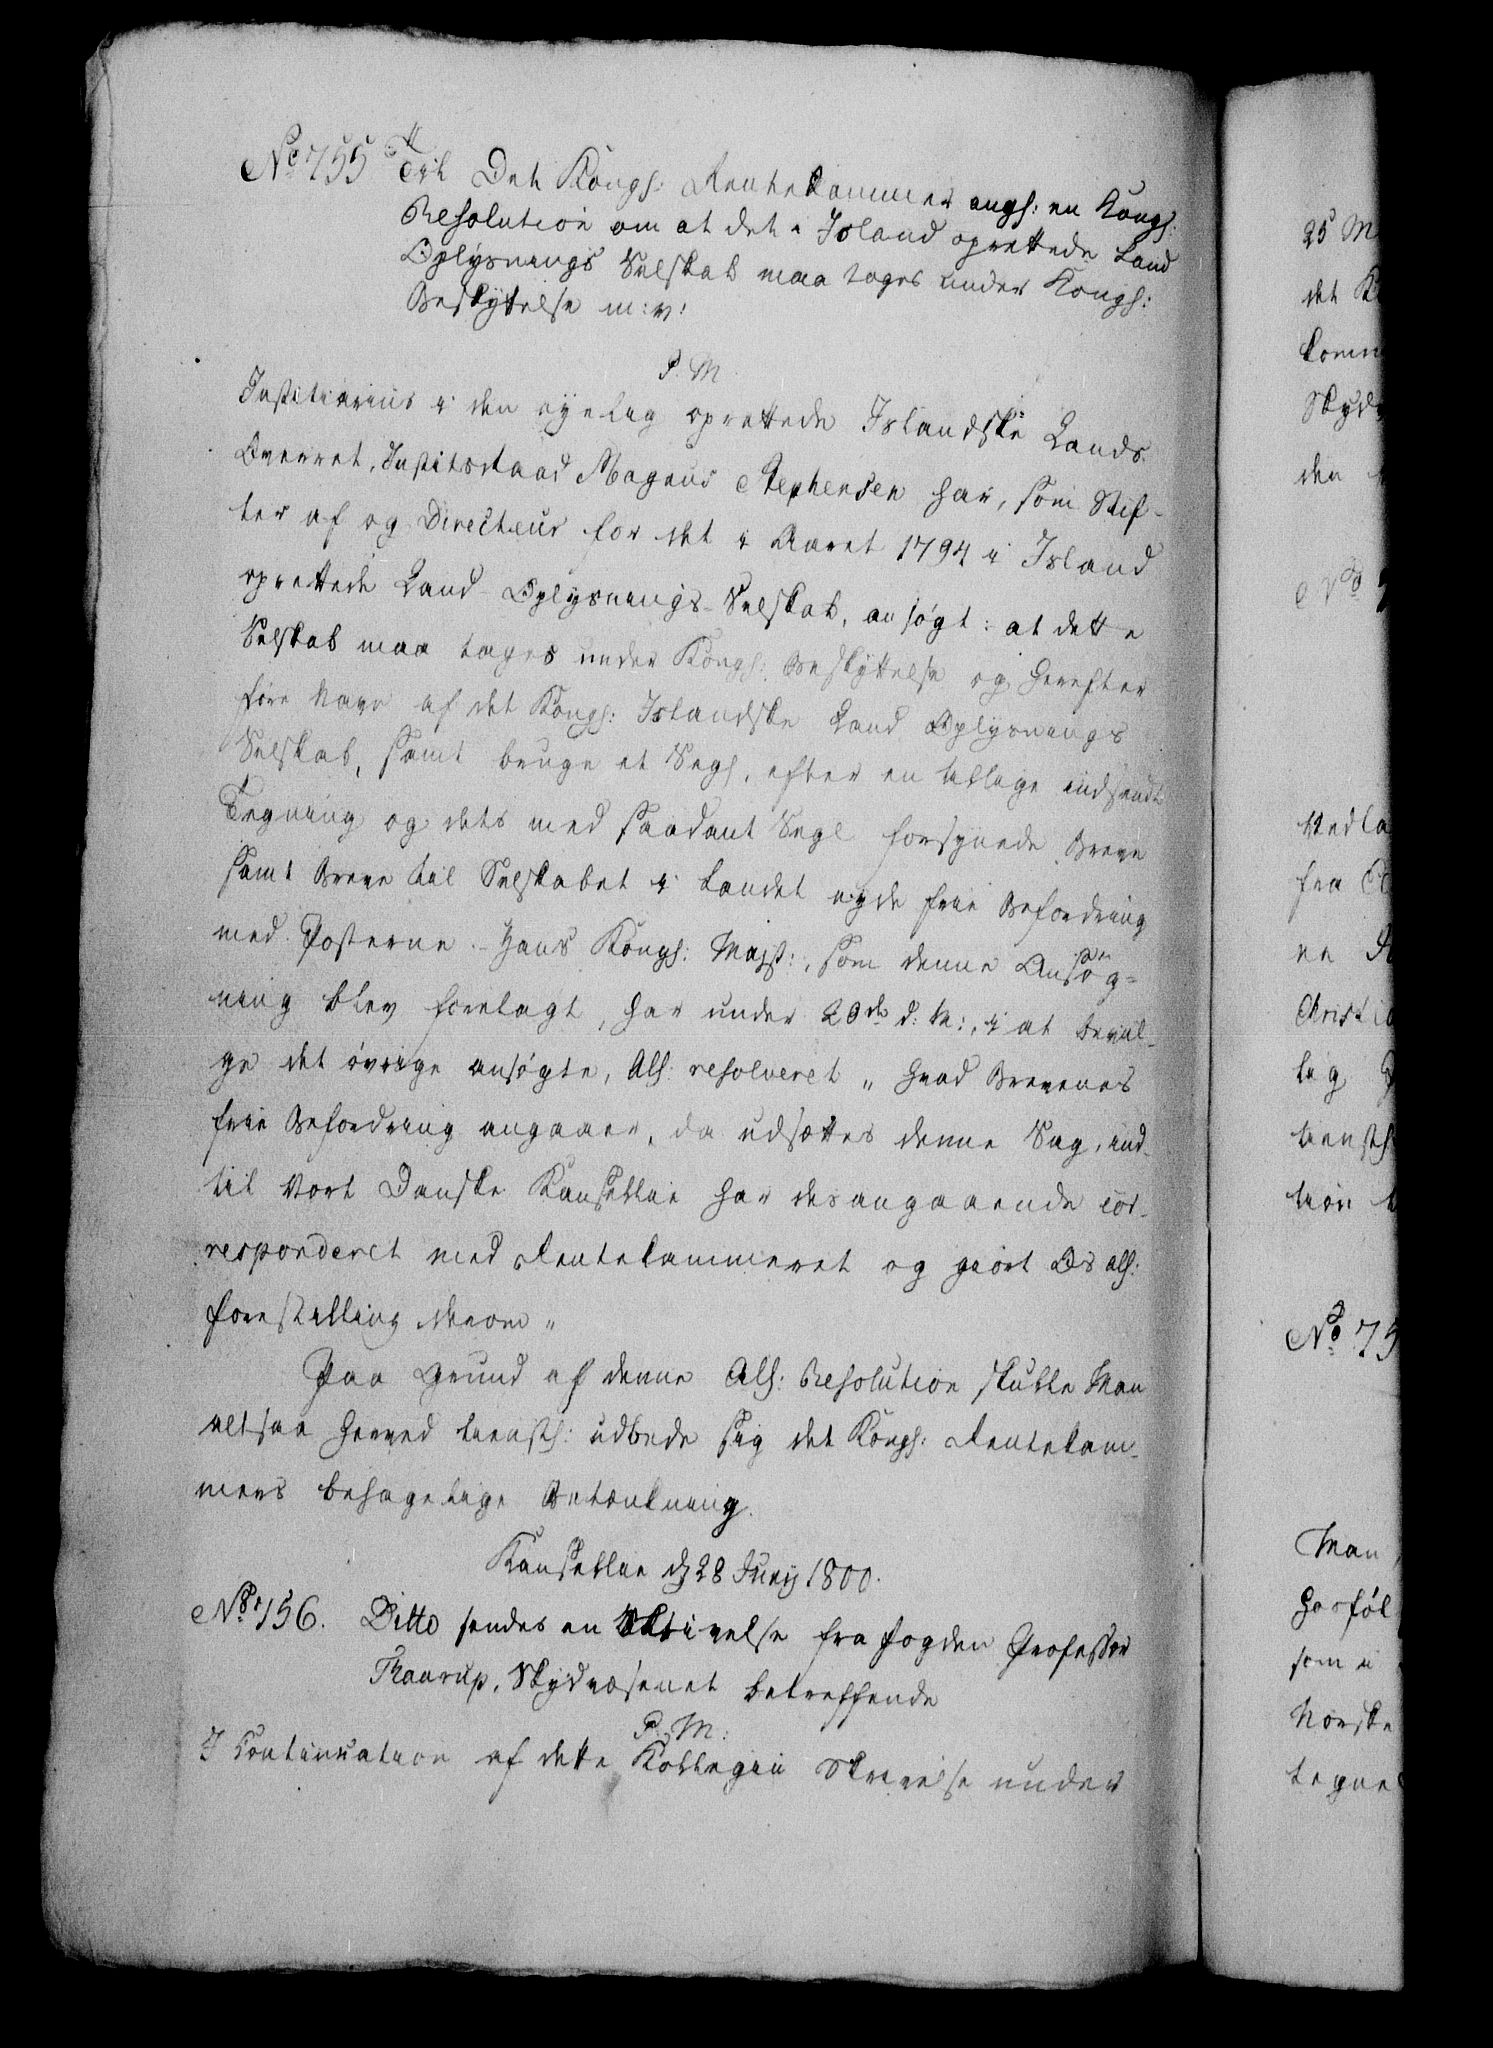 No 755 Til Det Kongl: Rentekammer angl: en Kongl:
Resolution om at det i Island oprettede Land
Oplysnings Selskab maa tages under Kongl:
Beskyttelse m: v:
P. M.
Justitiarius i den nyelig oprettede Islandske Lands
Overret, Justitsraad Magnus Stephensen har, som Stif-
ter af og Directeur for det i Aaret 1794 i Island
oprettede Land-Oplysnings-Selskab, ansøgt: at dette
Selskab maa tages under Kongl: Beskyttelse og herefter
føre Navn af det Kongl: Islandske Land Oplysnings
Selskab, samt bruge et Segl, efter en tillige indsendt
Tegning og dets med saadant Segl forsynede Breve
samt Breve til Selskabet i Landet nyde frie Befordring
med Posterne. Hans Kongl: Majst:, som denne Ansøg-
ning blev forelagt, har under 20de d: M:, i at bevil-
ge det øvrige ansøgte, All: resolveret „ Hvad Brevenes
frie Befordring angaaer, da udsættes denne Sag, ind-
til Vort Danske Kancellie har desangaaende cor-
responderet med Rentekammeret og giort Os all:
forestilling derom „
Paa Grund af denne All: Resolution skulle Man
altsaa herved tienstl: udbede sig det Kongl: Rentekam-
mers behagelige Betænkning.
Kancellie d 28 Junij 1800.
No 756. Ditto sendes en Skrivelse fra fogden Professor
Thaarup, Skydsvæsenet betreffende
P. M:
I Continuation af dette Collegii Skrivelse under
25 M
det K
Comm
Skyds
den
No 7
Vedla
fra
en
Christia
lig
tienstl
tion
No 75
Man
Hosføl
som i
Norske
tegne